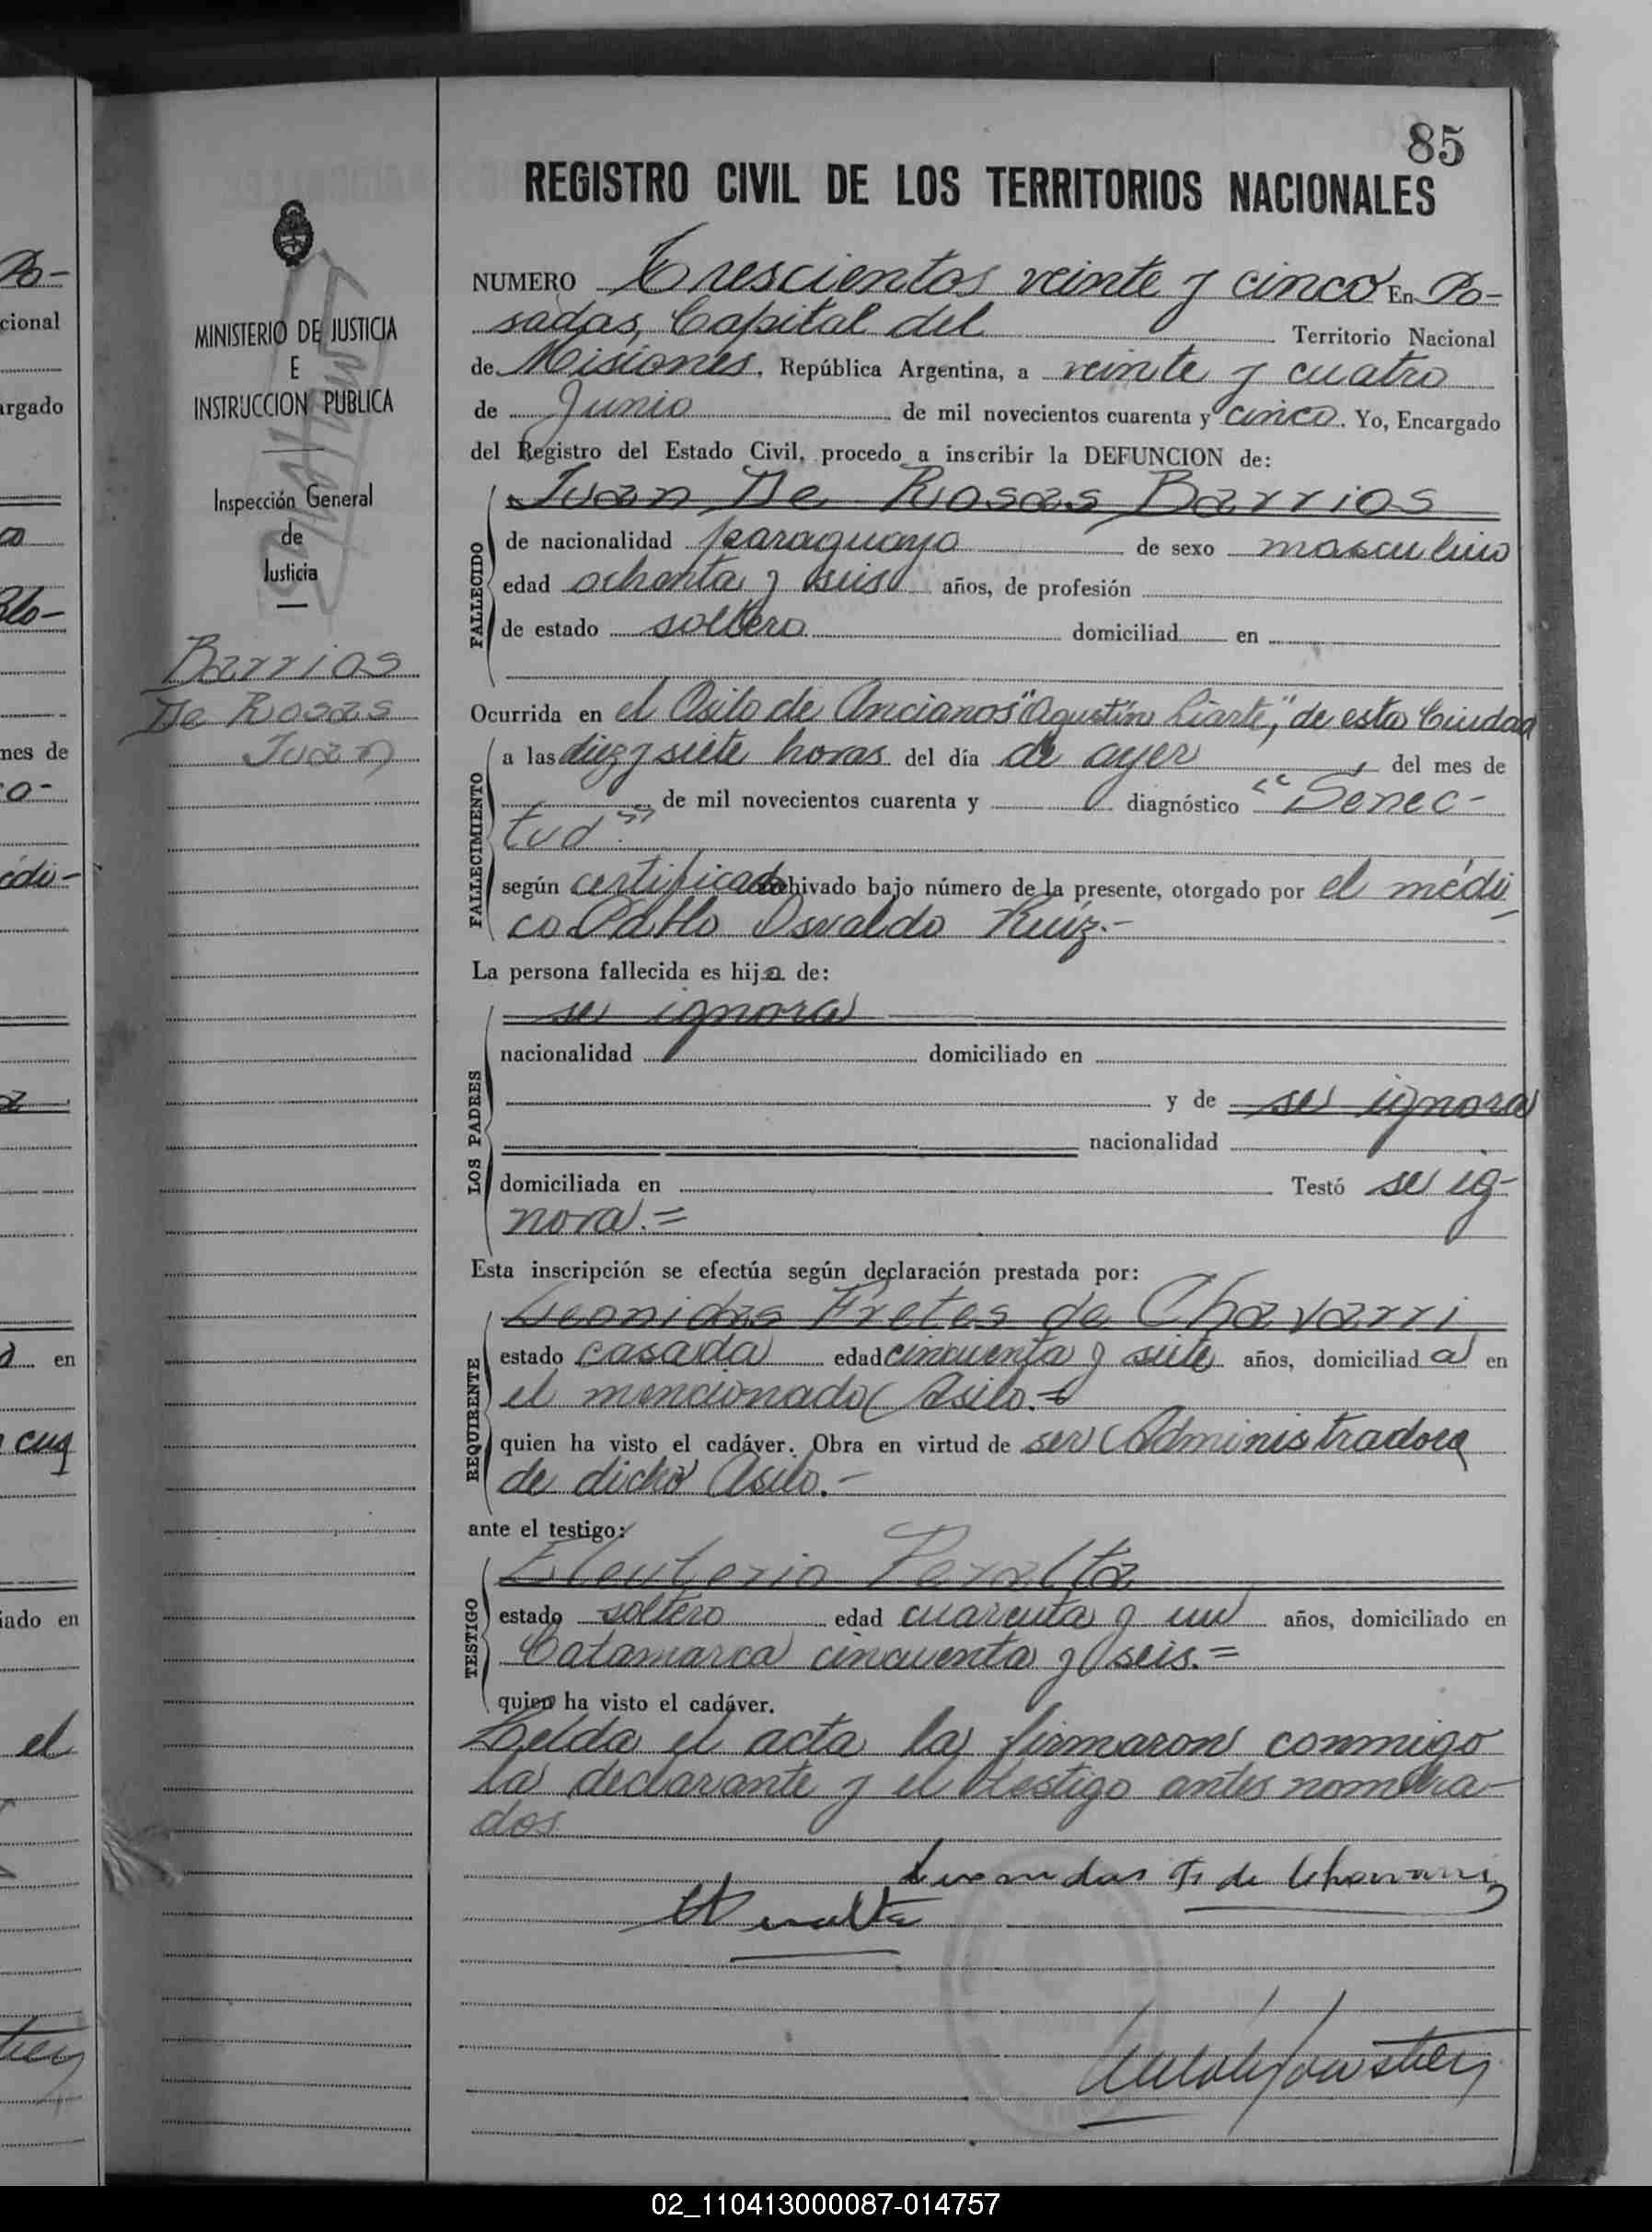 85
REGISTRO CIVIL DE LOS TERRITORIOS NACIONALES
NUMERO Trescientos veinte y cinco En Po-
sadas, Capital del Territorio Nacional
de Misiones, República Argentina, a veinte y cuatro
de Junio de mil novecientos cuarenta y cinco. Yo, Encargado
del Registro del Estado Civil, procedo a inscribir la DEFUNCION de:
Juan De Rosas Barrios
FALLECIDO
de nacionalidad paraguayo de sexo masculino
edad ochenta y seis años, de profesión
de estado soltero domiciliad en
Ocurrida en el Asilo de Ancianos "Agustín Liarte", de esta Ciudad
FALLECIMIENTO
a las diez y siete horas del día de ayer del mes de
de mil novecientos cuarenta y diagnóstico "Senec-
tud".
según certificado archivado bajo número de la presente, otorgado por el médi-
co Pablo Osvaldo Ruíz.-
La persona fallecida es hijo de:
LOS PADRES
se ignora
nacionalidad domiciliado en
y de se ignora
nacionalidad
domiciliada en Testó se ig-
nora.=
Esta inscripción se efectúa según declaración prestada por:
REQUIRENTE
Leonidas Fretes de Chavarri
estado casada edad cincuenta y siete años, domiciliad a en
el mencionado Asilo.=
quien ha visto el cadáver. Obra en virtud de ser Administradora
de dicho Asilo.-
ante el testigo:
TESTIGO
Eleuterio Peralta
estado soltero edad cuarenta y un años, domiciliado en
Catamarca cincuenta y seis.=
quien ha visto el cadáver.
Leída el acta la firmaron conmigo
la declarante y el testigo antes nombra-
dos
Leonidas F. de Chavarri
EPeralta
MINISTERIO DE JUSTICIA
E
INSTRUCCION PUBLICA
Inspección General
de
Justicia
Barrios
De Rosas
Juan
Po-
cional
argado
Blo-
mes de
co-
édi-
en
iado en
el
02_110413000087-014757